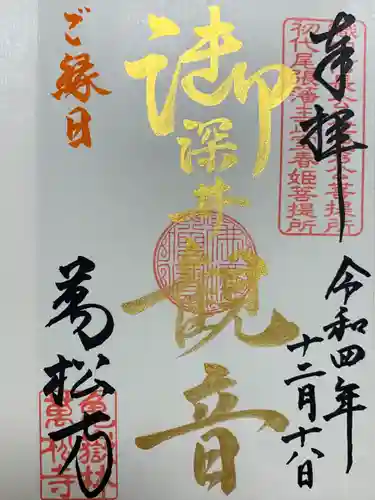 奉拝
初代尾張藩主正室春姫菩提所
令和四年
十二月十八日
御深井観音
ご縁日
萬松寺
亀嶽林
萬松寺